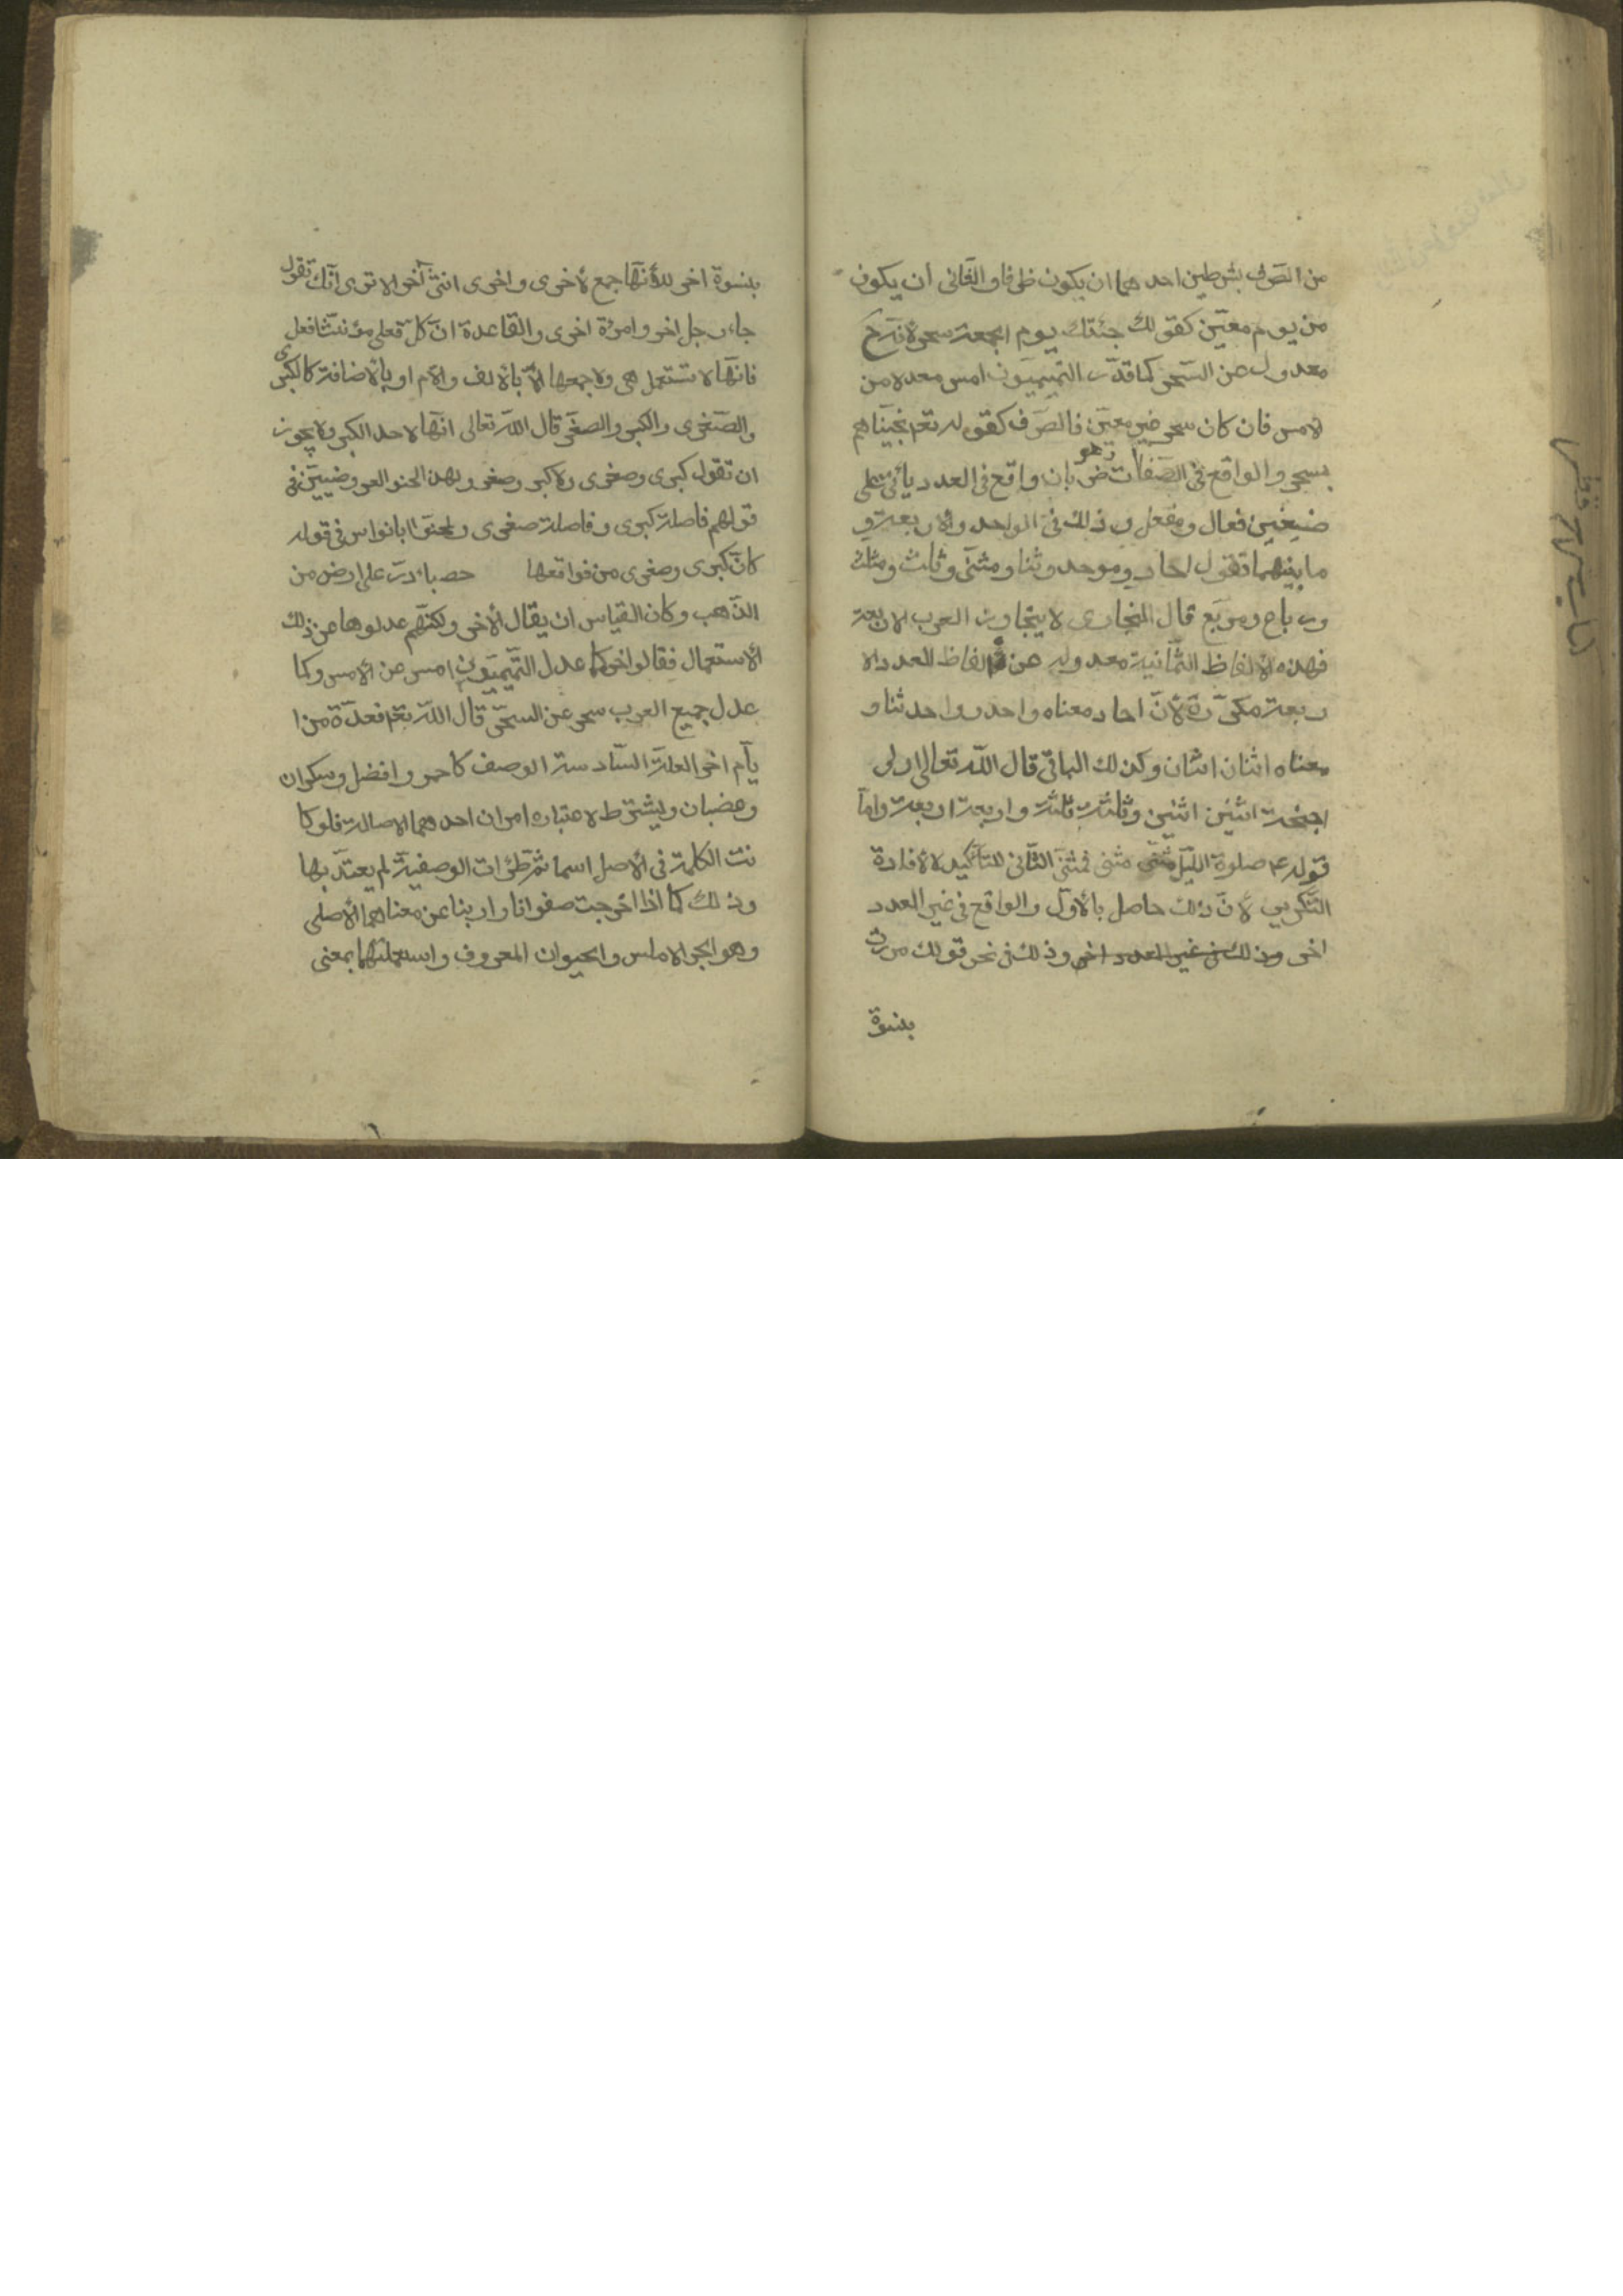 من الصرف بشرطين احدهما ان يكون ظرفا والثانى ان يكون
من يوم معيّن كقولك جئتك يوم الجمعة سحر لانّه ح
معدول عن السّحر كما قدّر التميميّون امس معدولا من
لامس فان كان سحر غير معيّن فالصرف كقوله تعم نجّيناهم
بسحر والواقع فى الصّفات ضربان واقع فى العدد ويأتى على
صيغتين فعال ومفعل وذلك فى الواحد والاربعة و
ما بينهما تقول احاد وموحد وثنا ومثنى وثلث ومثلث
ورباع ومربع قال البخارى لا يتجاوز العرب الاربعة
فهذه الالفاظ الثّمانية معدوله عن الفاظ العدد الا
ربعة مكرّرة لانّ احاد معناه واحد واحد وثنا و
معناه اثنان اثنان وكذلك الباقى قال اللّه تعالى اولى
اجنحة اثنين اثنين وثلثة ثلثة واربعة اربعة وامّا
قوله ع صلوة الليل مثنى مثنى فمثنى الثّانى للتأكيد لا لافادة
التّكرير لانّ ذلك حاصل بالاوّل والواقع فى غير العدد
اخر وذلك فى غير العدد اخر وذلك فى نحو قولك مررت
بنسوة
بنسوة اخر لانّها جمع لاخرى واخرى انثى آخر الا ترى انّك تقول
جاء رجل اخر وامرئة اخرى والقاعدة انّ كلّ فعلى مؤنّثا افعل
فانّها لا تستعمل هى ولا جمعها الّا بالالف واللام او بالاضافة كالكبرى
والصّغرى والكبر والصغر قال اللّه تعالى انّها لاحد الكبر ولا يجوز
ان تقول كبرى وصغرى ولا كبر وصغر ولهذا لحنوا العروضيين فى
قولهم فاصلة كبرى وفاصلة صغرى ولحنوا ابانواس فى قوله
كانّ كبرى وصغرى من فواقعها حصباء درّ على ارض من
الذّهب وكان القياس ان يقال الاخر ولكنّهم عدلوها عن ذلك
الاستعمال فقالوا اخر كما عدل التّميميّون امس عن الامس وكما
عدل جميع العرب سحر عن السحر قال اللّه تعم فعدّة من ا
يّام اخر العلّة السّادسة الوصف كاحمر وافضل وسكران
وغضبان ويشترط لاعتباره امران احدهما الاصالة فلو كا
نت الكلمة فى الاصل اسما ثمّ طرئت الوصفيّة لم يعتدّ بها
وذلك كما اذا اخرجت صفوانا وارنبا عن معناهما الاصلى
وهو الحجر الاملس والحيوان المعروف واستعملتهما بمعنى